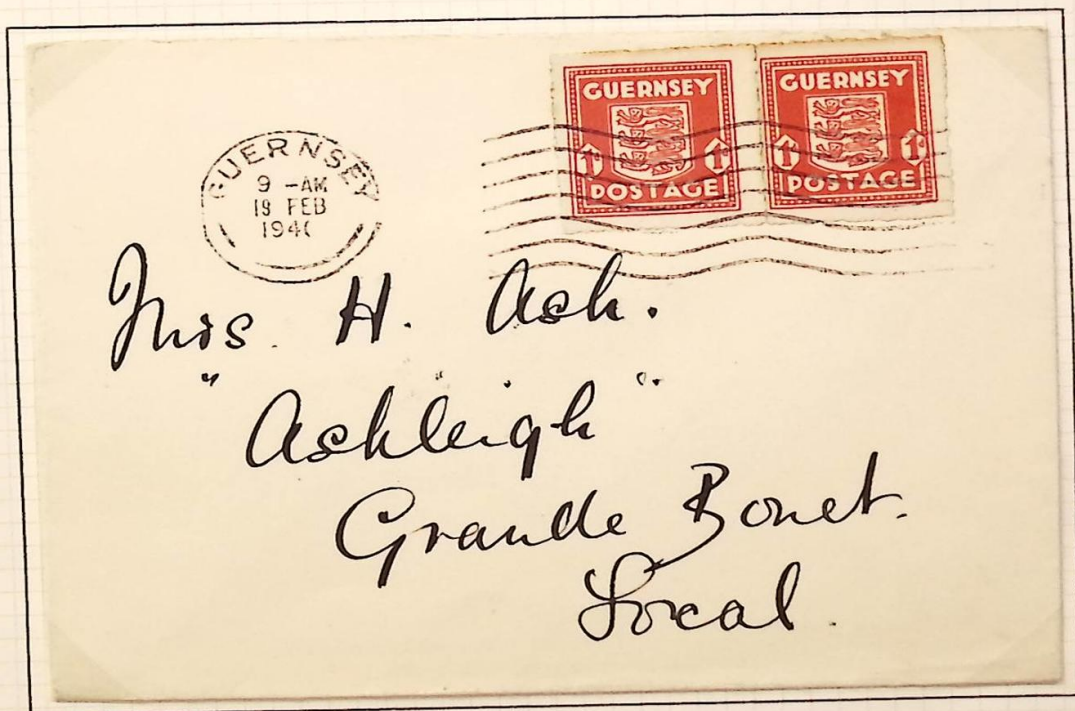 GUERNSEY
9 - AM
19 FEB
194
GUERNSEY
1D 1D
POSTAGE
GUERNSEY
1D 1D
POSTAGE
Mrs. H. Ash.
"Ashleigh".
Grande Bouet.
Local.